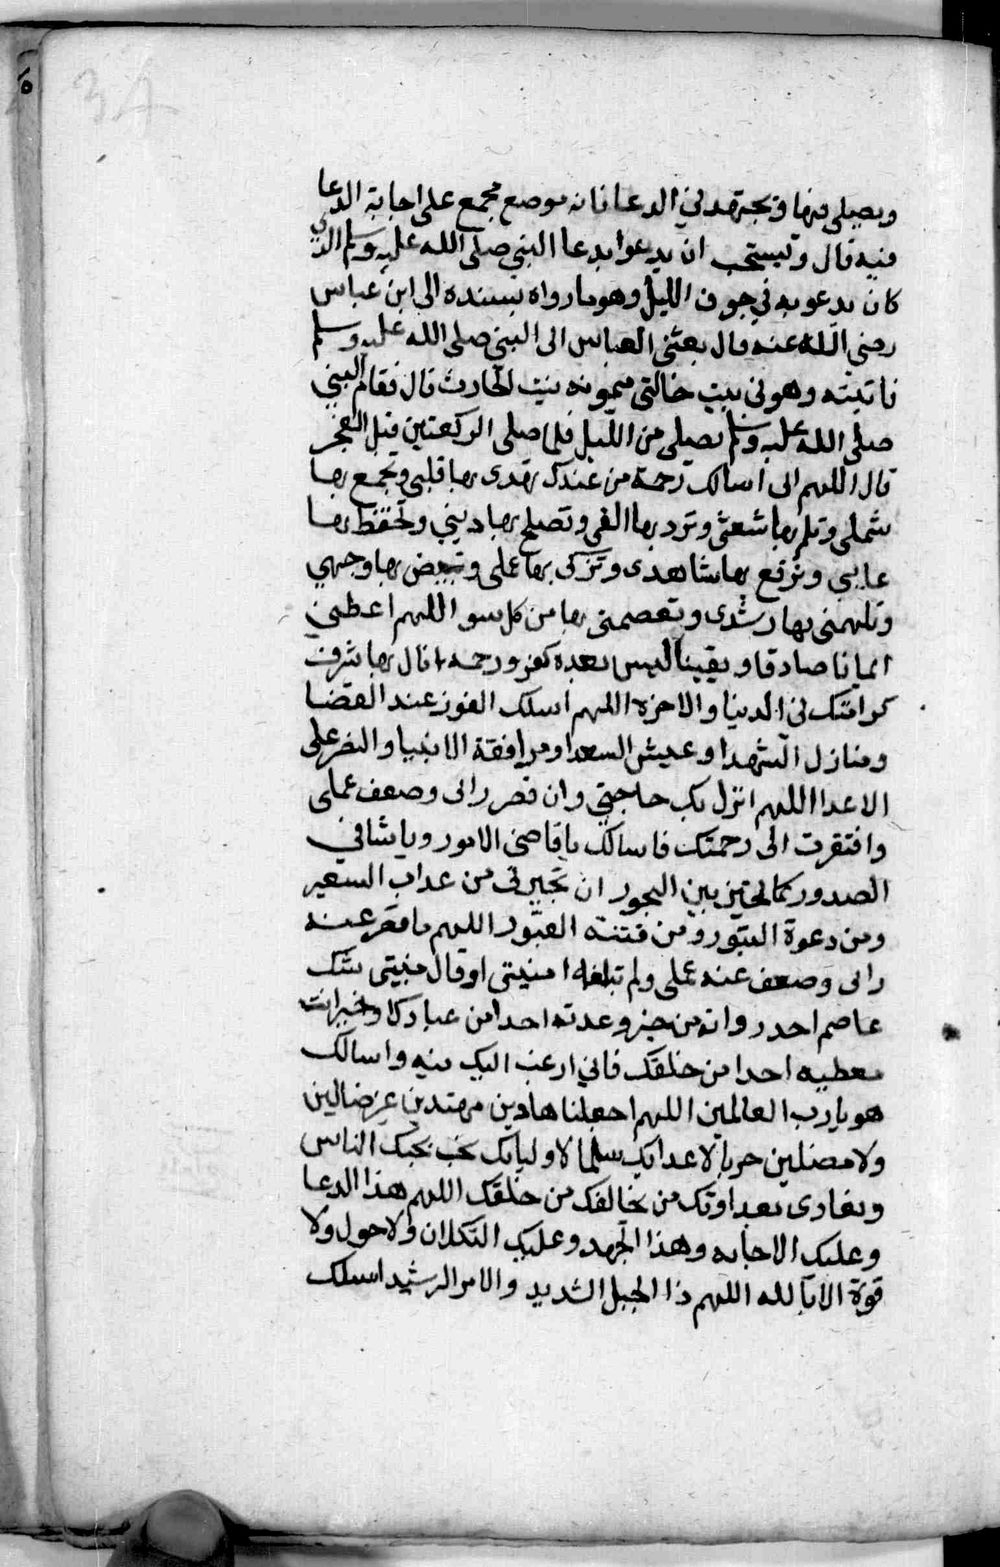 ويصلي فيها ويجتهد في الدعا فانه موضع مجمع على اجابة الدعا
فيه قال ويستحب ان يدعوا بدعا النبي صلى الله عليه وسلم الذي
كان يدعو به في جوف الليل وهو ما رواه بسنده الى ابن عباس
رضي الله عنه قال بعثني العباس الى النبي صلى الله عليه وسلم
فاتيته وهو في بيت خالتي ميمونه بنت الحارث قال فقام النبي
صلى الله عليه وسلم يصلي من الليل فلما صلى الركعتين قبل الفجر
قال اللهم اني اسالك رحمة من عندك تهدى بها قلبي وتجمع بها
شملي وتلم بها شعثي وترد بها الفي وتصلح بها ديني وتحفظ بها
غايبي وترفع بها شاهدى وتزكى بها عملي وتبيض بها وجهي
وتلهمني بها رشدى وتعصمني بها من كل سو اللهم اعطني
ايمانا صادقا ويقينا ليس بعده كفر ورحمه انال بها شرف
كرامتك في الدنيا والاخرة اللهم اسلك الفوز عند القضا
ومنازل الشهدا وعيش السعدا ومرافقة الانبيا والنصر على
الاعدا اللهم انزل بك حاجتي وان قصر رايى وضعف عملى
وافتقرت الى رحمتك فاسالك يا قاضي الامور ويا شافي
الصدور كما تجيز بين البحور ان تجيرني من عذاب السعير
ومن دعوة الثبور ومن فتنة القبور اللهم ما قصر عنه
رايى وضعف عنه عملى ولم تبلغه امنيتي او قال منيتي شك
عاصم احد رواته من خير وعدته احدا من عبادك او خير انت
معطيه احدا من خلقك فاني ارغب اليك فيه واسالك
هو يا رب العالمين اللهم اجعلنا هادين مهتدين غير ضالين
ولا مضلين حربا لاعدايك سلما لاوليايك نحب بحبك الناس
ونعادى بعداوتك من يخالفك من خلقك اللهم هذا الدعا
وعليك الاجابه وهذا الجهد وعليك التكلان ولا حول ولا
قوة الا بالله اللهم ذا الحبل الشديد والامر الرشيد اسلك